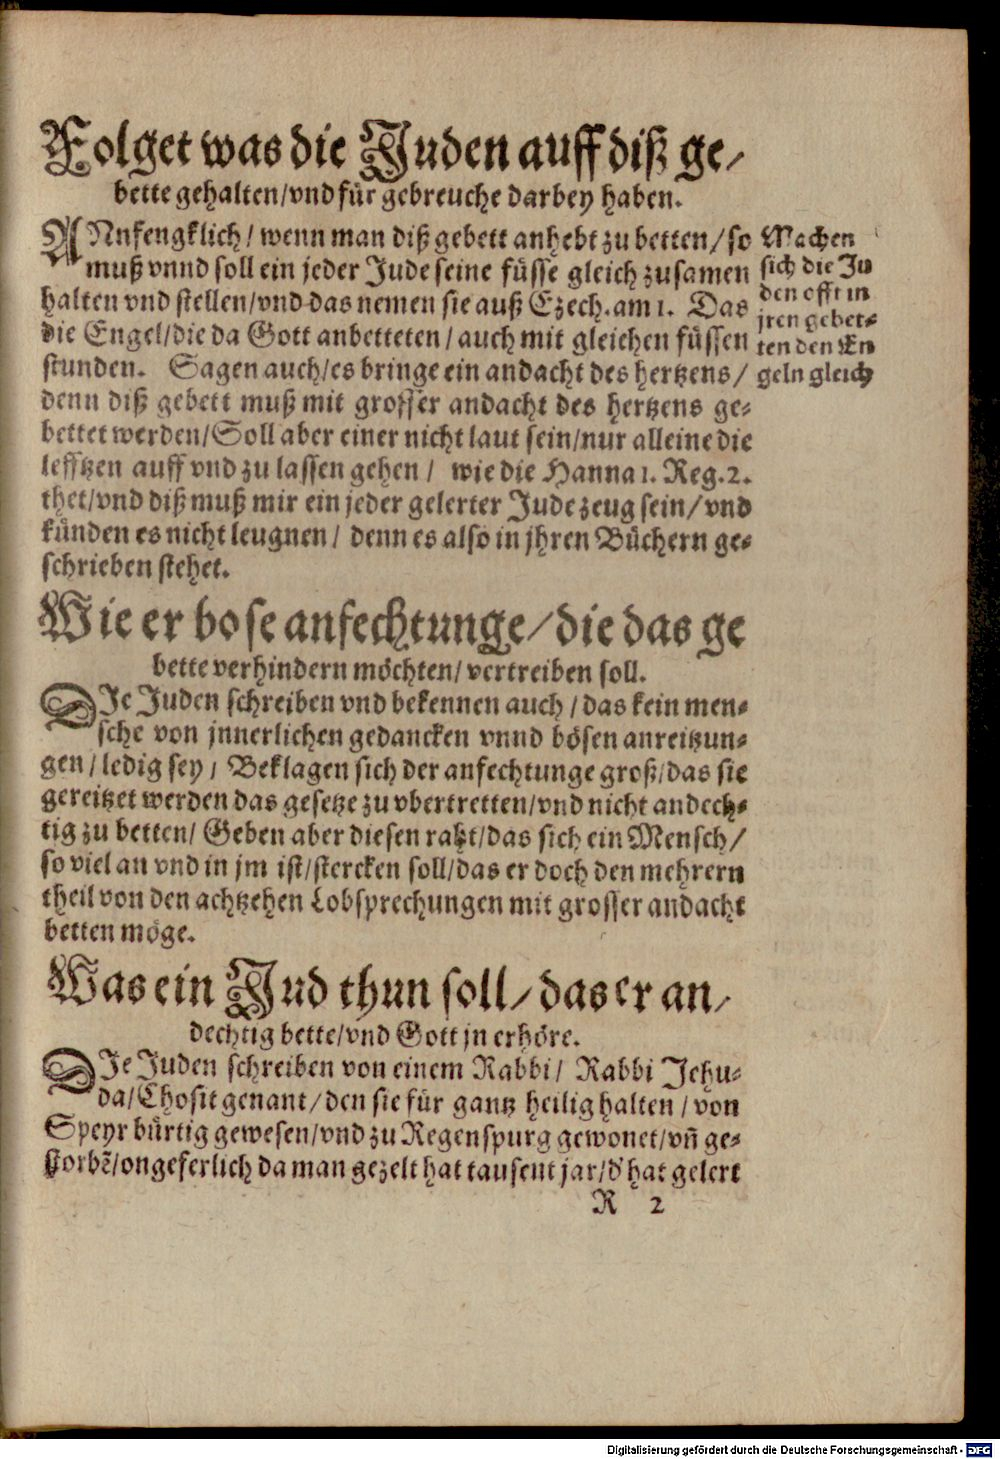 Folget was die Juden auff diß ge/
bette gehalten/vnd für gebreuche darbey haben.
ANnfengklich/ wenn man diß gebett anhebt zu betten/ so
muß vnnd soll ein jeder Jude seine füsse gleich zusamen
halten vnd stellen/vnd das nemen sie auß Ezech. am 1. Das
die Engel/die da Gott anbetteten/ auch mit gleichen füssen
stunden. Sagen auch/es bringe ein andacht des hertzens/
denn diß gebett muß mit grosser andacht des hertzens ge-
bettet werden/Soll aber einer nicht laut sein/nur alleine die
lefftzen auff vnd zu lassen gehen/ wie die Hanna 1. Reg. 2.
thet/vnd diß muß mir ein jeder gelerter Jude zeug sein/ vnd
künden es nicht leugnen/ denn es also in jhren Büchern ge-
schrieben stehet.
Machen
sich die Ju
den offt in
jren gebet-
ten den En
geln gleich
Wie er bose anfechtunge/die das ge
bette verhindern möchten/ vertreiben soll.
DIe Juden schreiben vnd bekennen auch/ das kein men-
sche von jnnerlichen gedancken vnnd bösen anreitzun-
gen/ ledig sey/ Beklagen sich der anfechtunge groß/das sie
gereitzet werden das gesetze zu vbertretten/vnd nicht andech-
tig zu betten/ Geben aber diesen raht/das sich ein Mensch/
so viel an vnd in jm ist/stercken soll/das er doch den mehrern
theil von den achtzehen Lobsprechungen mit grosser andacht
betten möge.
Was ein Jud thun soll/ das er an/
dechtig bette/vnd Gott jn erhöre.
DIe Juden schreiben von einem Rabbi/ Rabbi Jehu-
da/Chosit genant/den sie für gantz heilig halten/ von
Speyr bürtig gewesen/vnd zu Regenspurg gewonet/vñ ge-
storbẽ/ongeferlich da man gezelt hat tausent jar/d' hat gelert
R 2
Digitalisierung gefördert durch die Deutsche Forschungsgemeinschaft - DFG